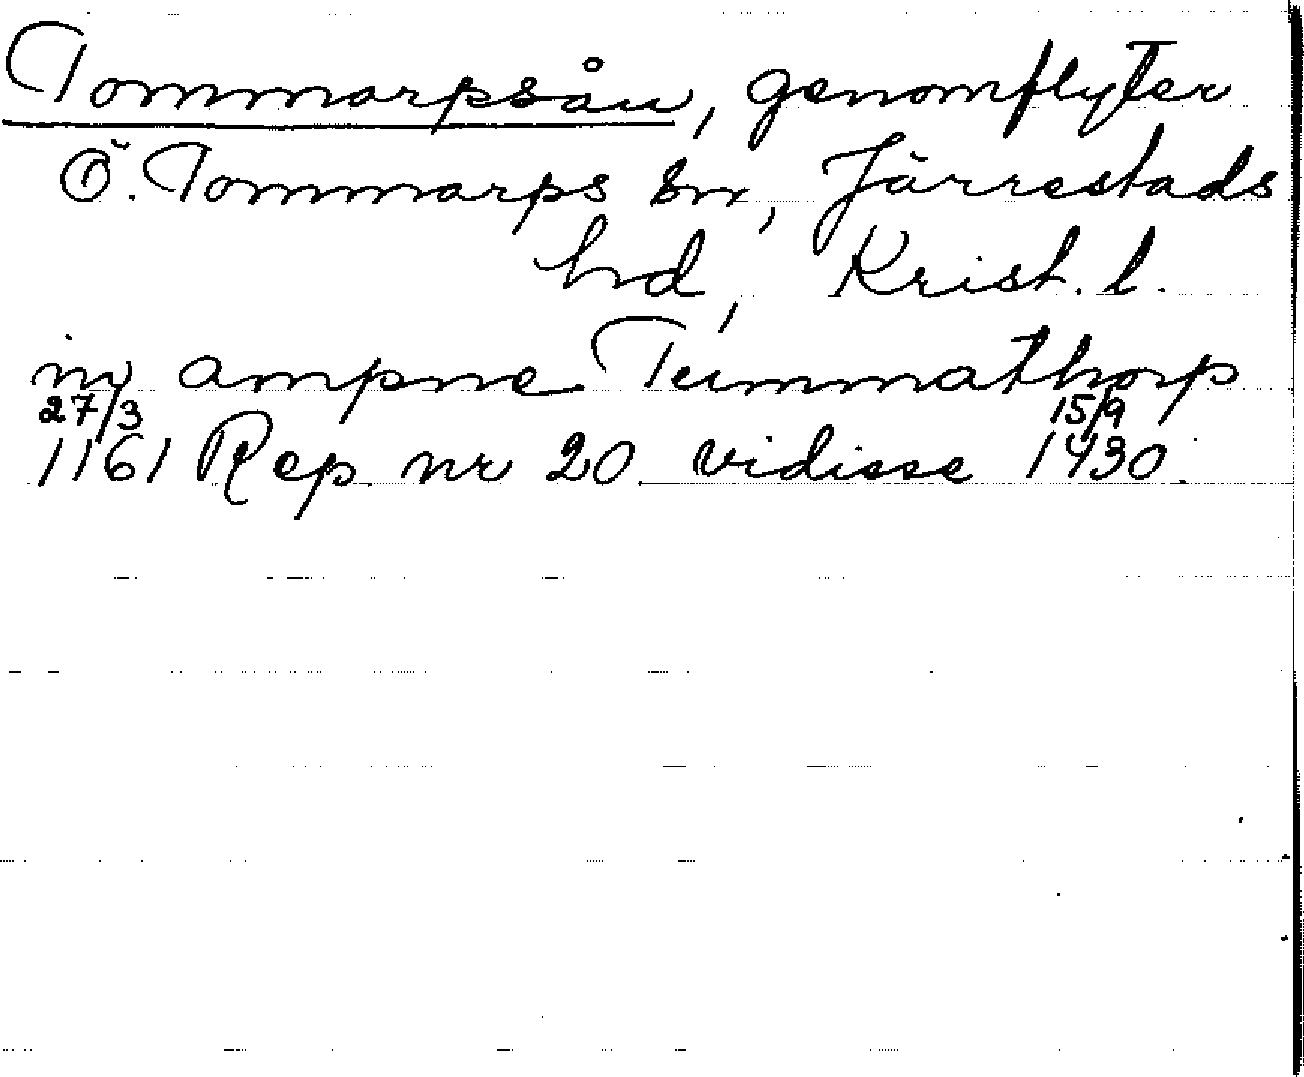 Tommarpsån, genomflyter
Ö. Tommarps sn, Järrestads
hd, Krist. l.
in ampne Tummathorp
27/3 1161 Rep nr 20 vidisse 15/9 1430